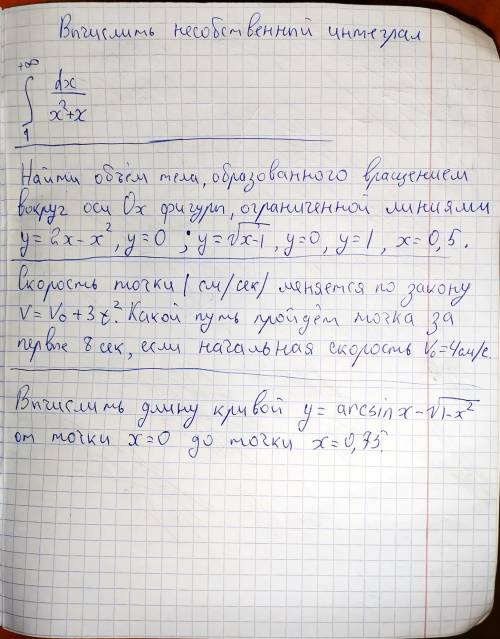 Вычислить несобственный интеграл
+∞
∫ dx / (x²+x)
1
Найти объём тела, образованного вращением
вокруг оси Ox фигуры, ограниченной линиями
y=2x-x², y=0 ; y=√x-1, y=0, y=1, x=0,5.
Скорость точки (см/сек) меняется по закону
V=V₀+3t². Какой путь пройдём точка за
первые 8 сек, если начальная скорость V₀=4см/с.
Вычислить длину кривой y=arcsinx-√1-x²
от точки x=0 до точки x=0,75.